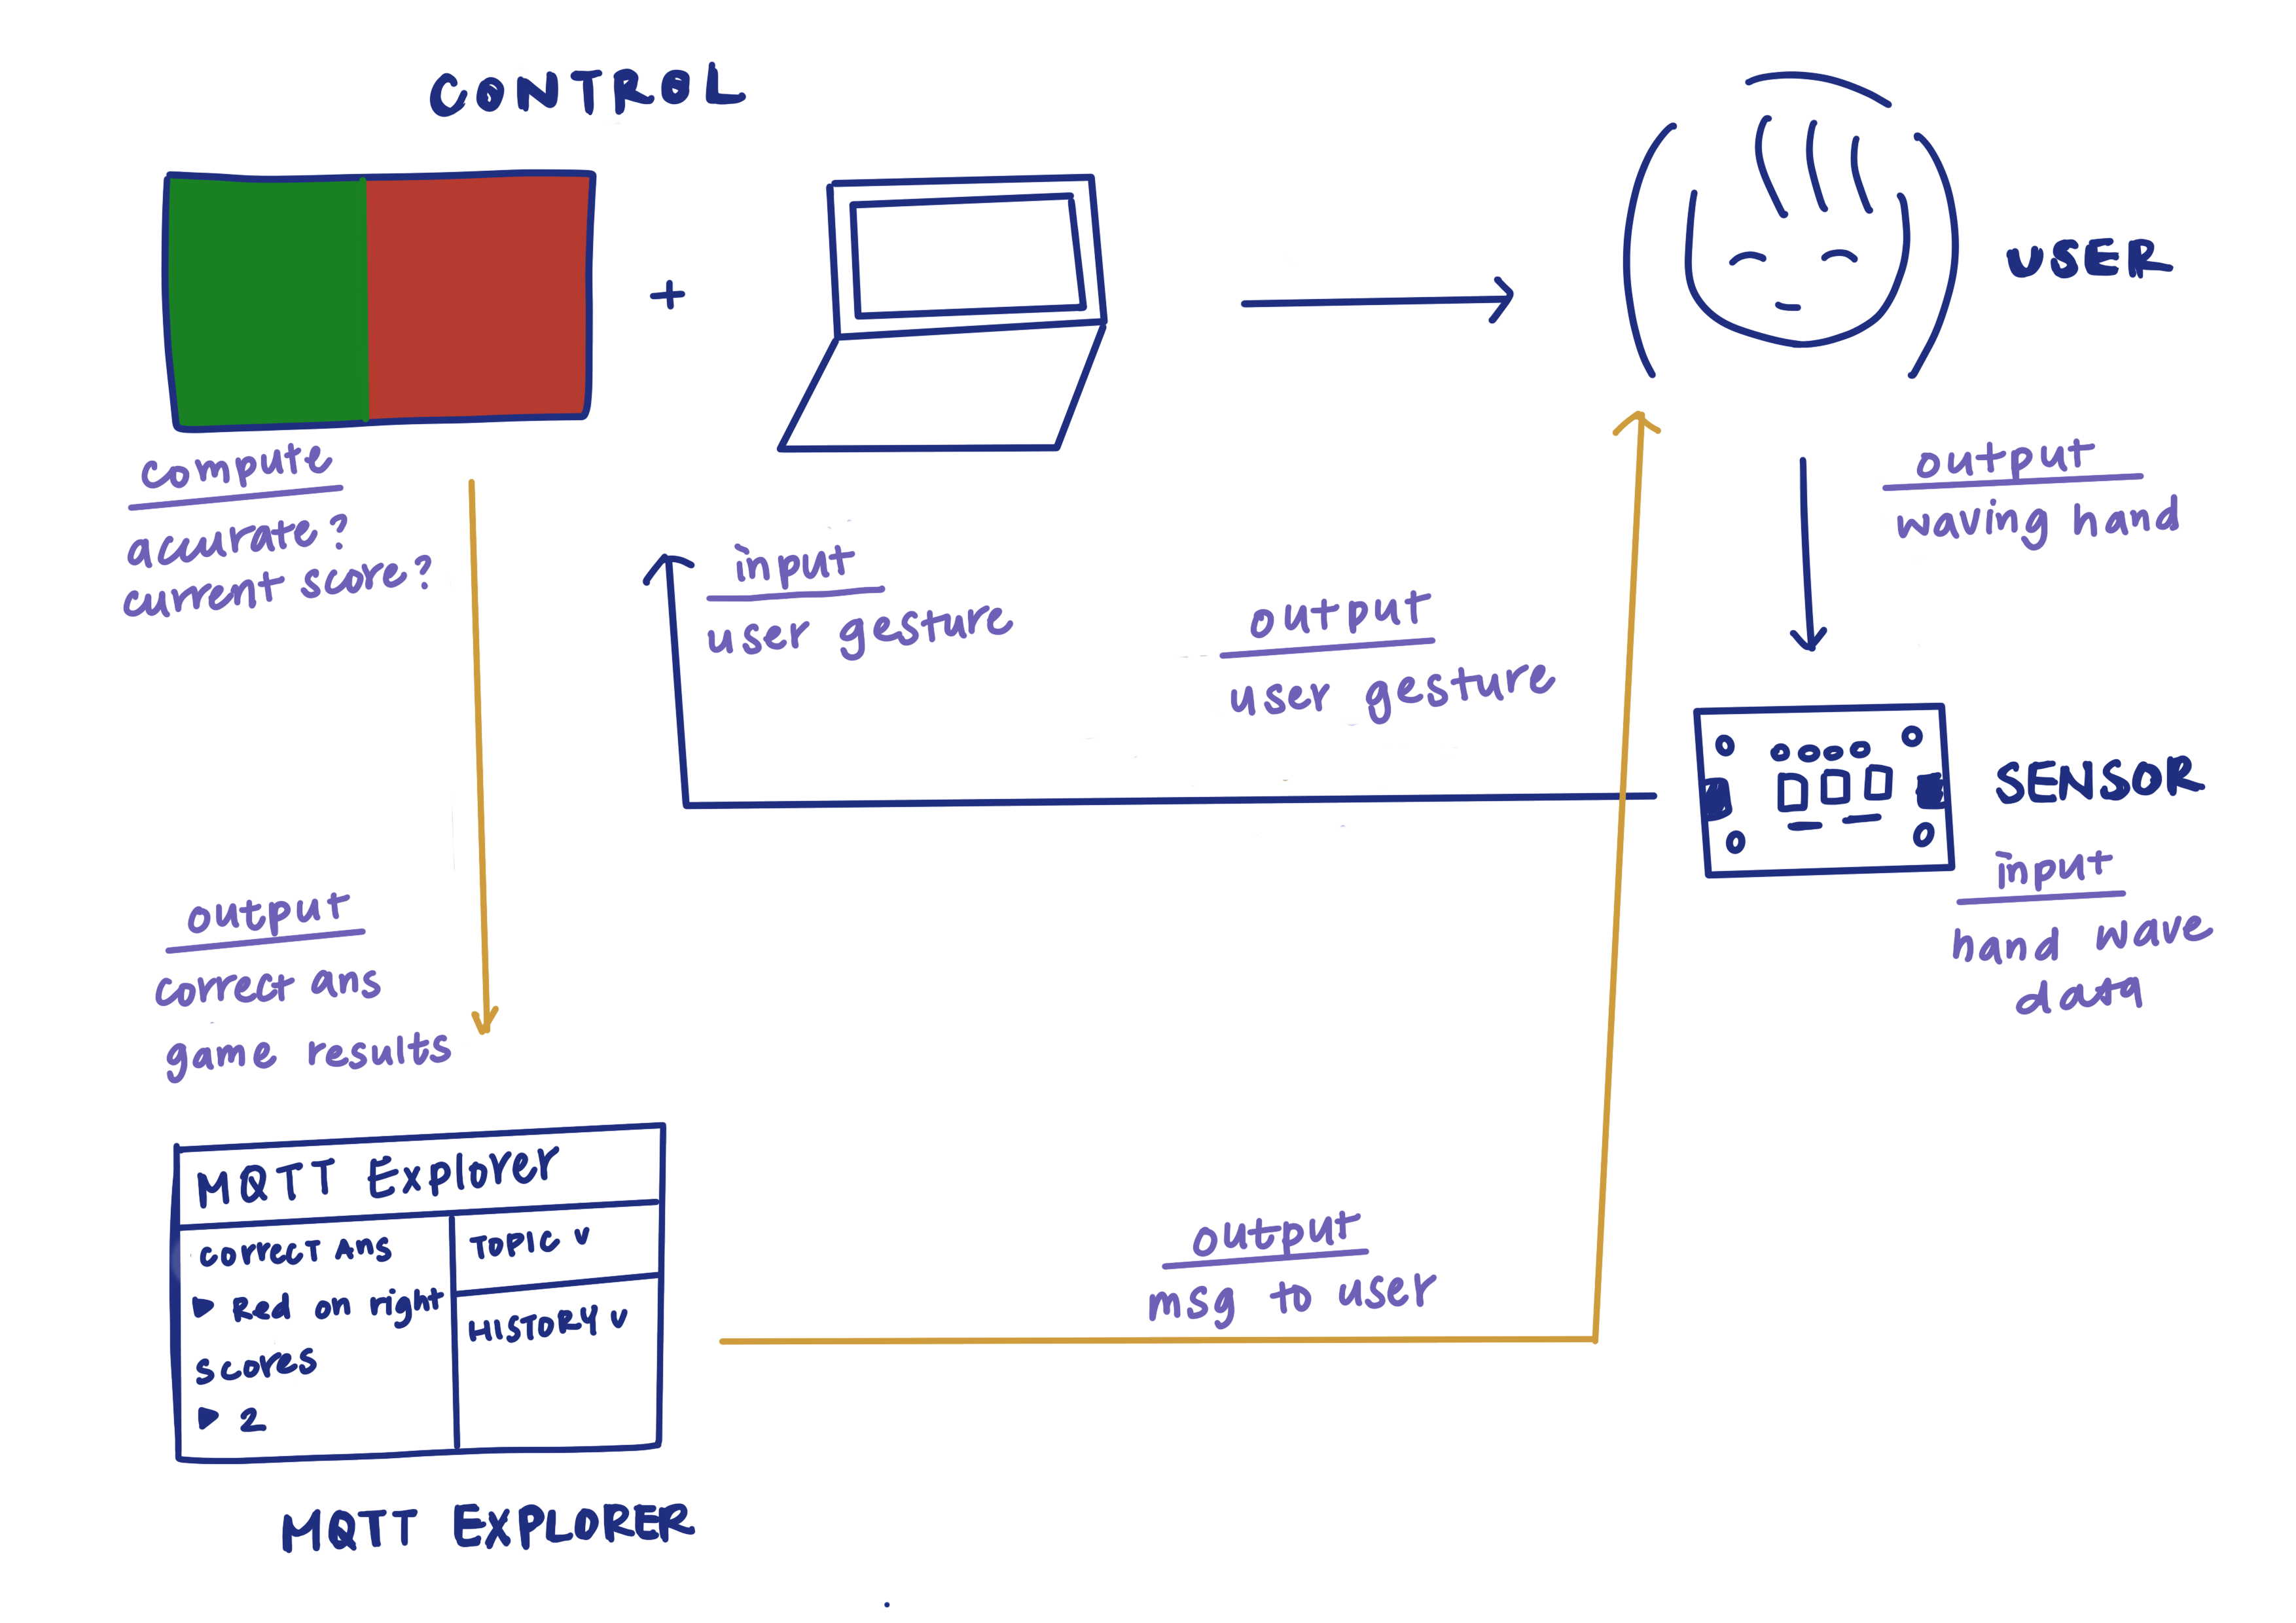 CONTROL
+
USER
compute
accurate?
current score?
input
user gesture
output
user gesture
output
waving hand
SENSOR
input
hand wave
data
output
correct ans
game results
MQTT Explorer
correct Ans
Red on right
scores
2
TOPIC v
HISTORY v
MQTT EXPLORER
output
msg to user